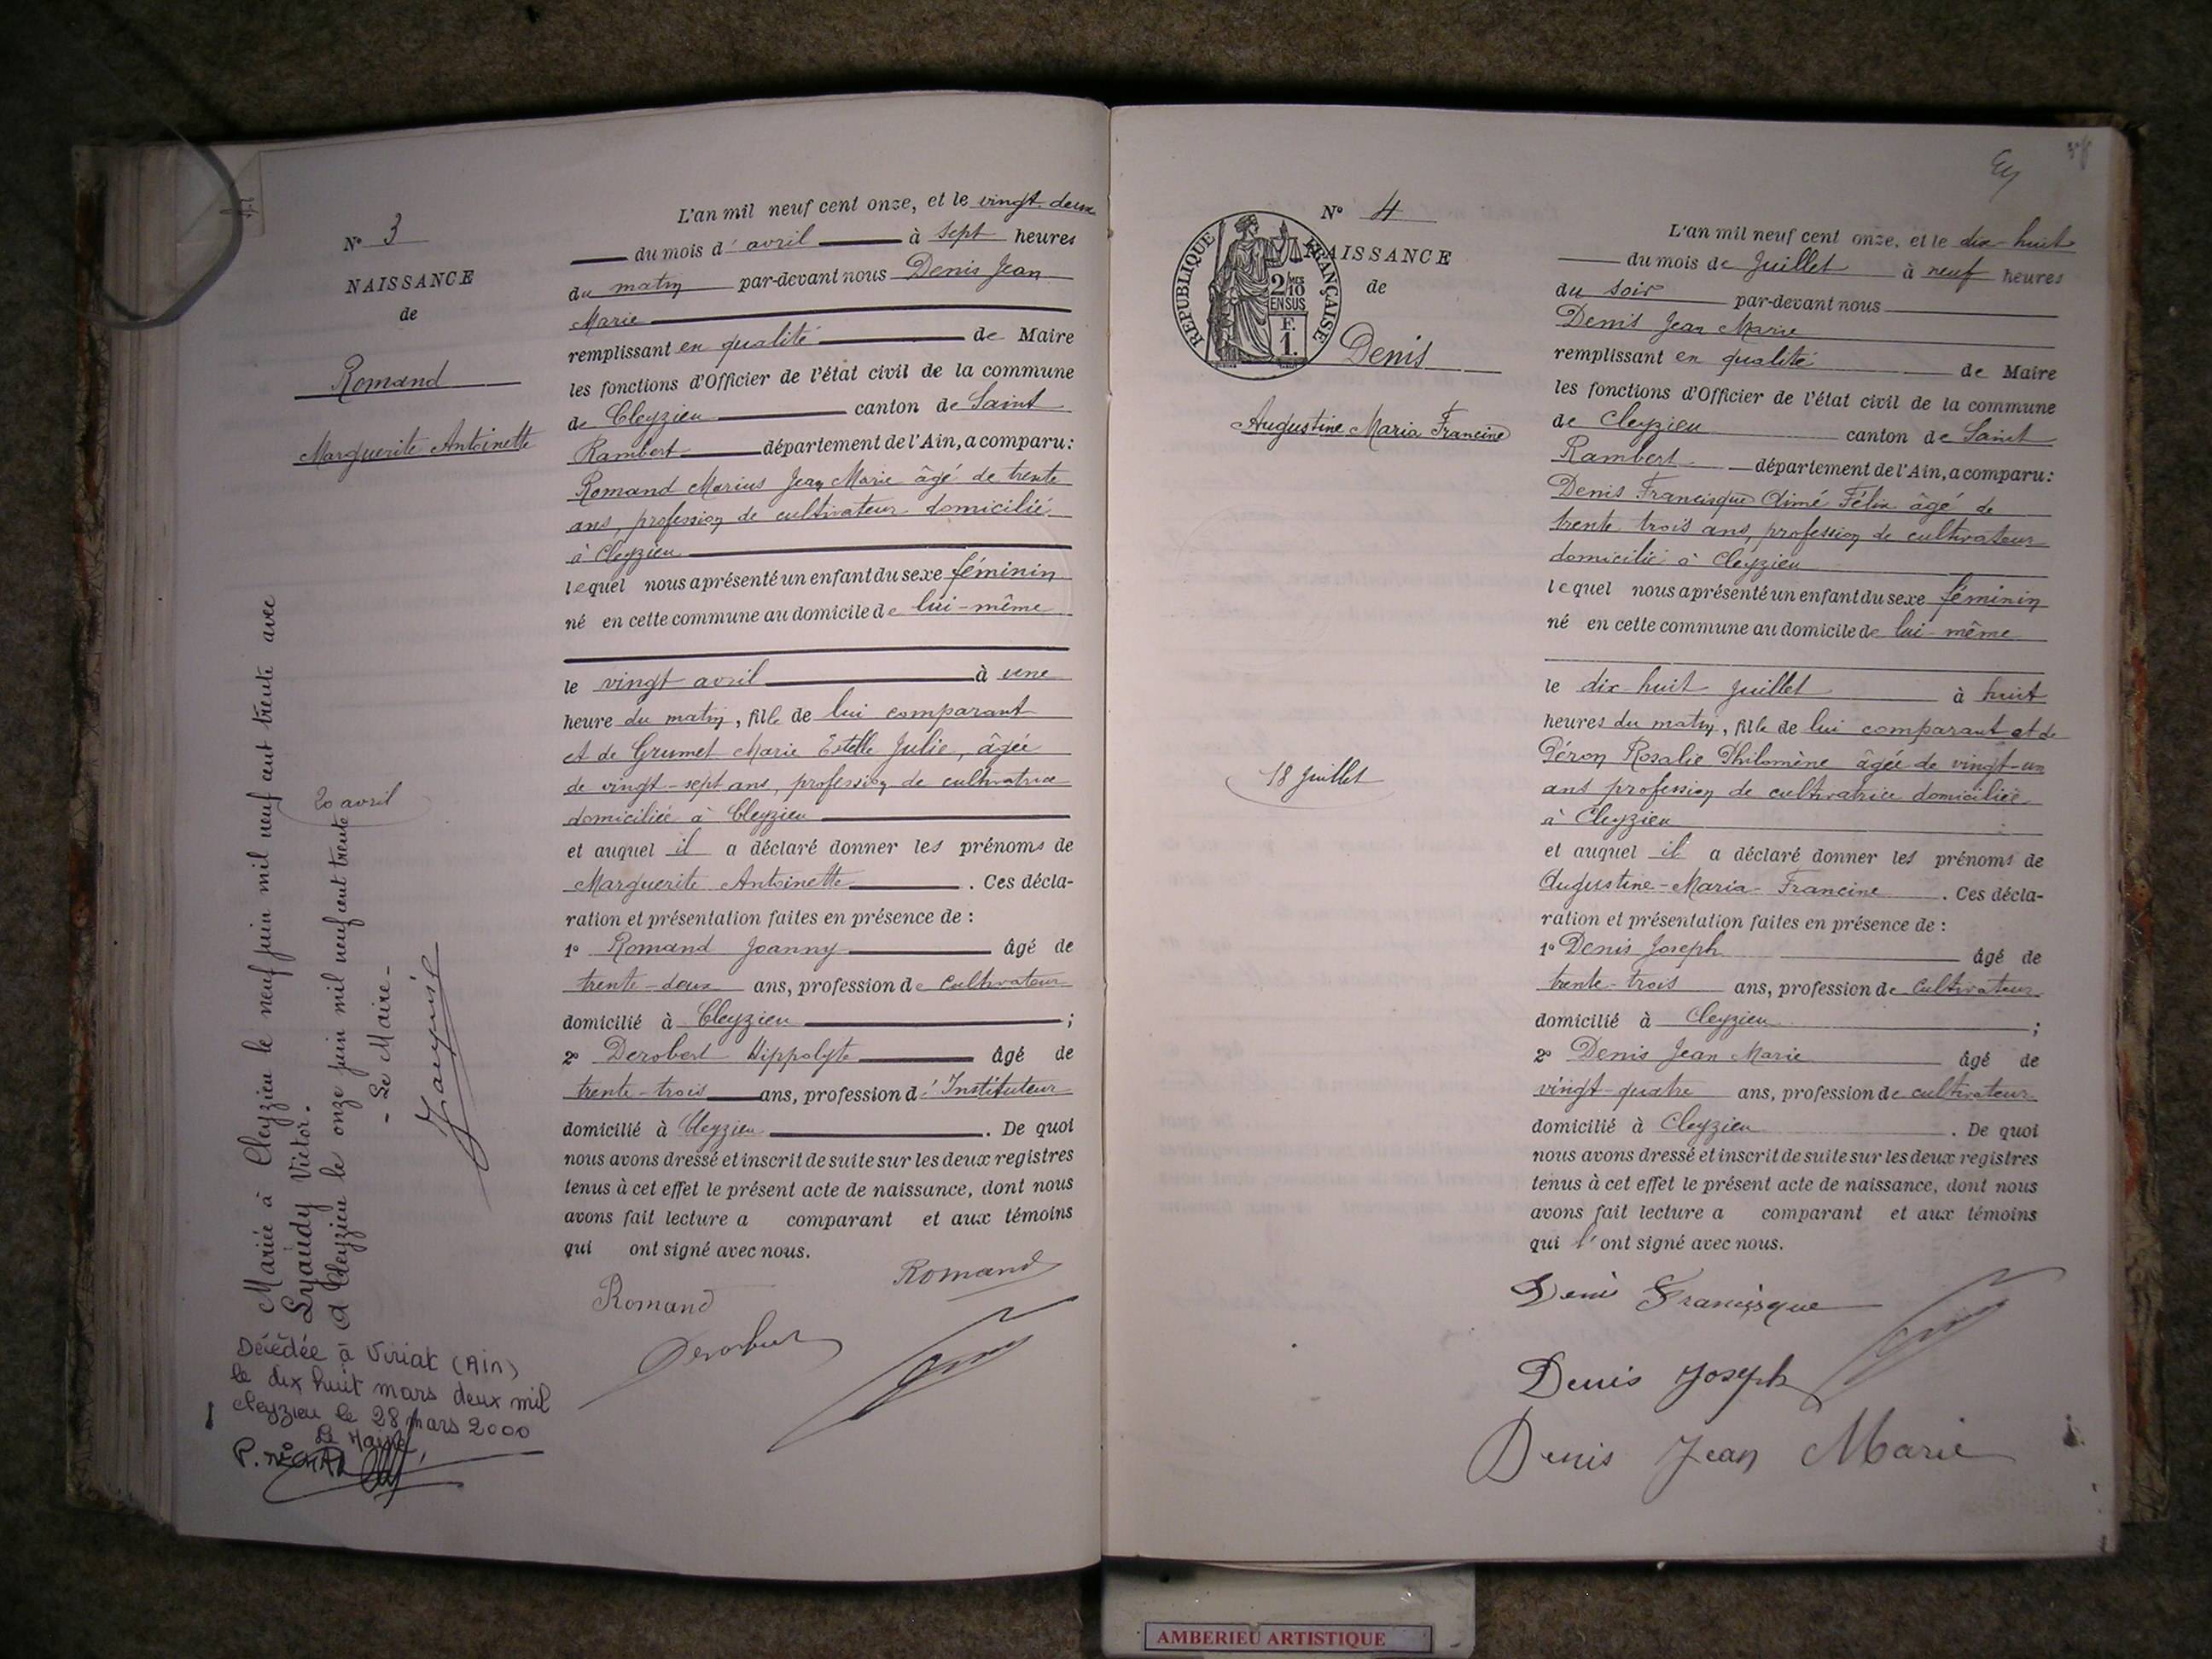 N° 3
NAISSANCE
de
Romand
Marguerite Antoinette
20 avril
Mariée à Cleyzieu le neuf juin mil neuf cent trente avec
Lyaudy Victor.
A Cleyzieu le onze juin mil neuf cent trente
- Le Maire -
Décédée à Viriat (Ain)
le dix huit mars deux mil
Cleyzieu le 28 mars 2000
Le Maire,
L'an mil neuf cent onze, et le vingt-deux
du mois d'avril à sept heures
du matin par-devant nous Denis Jean
Marie
remplissant en qualité de Maire
les fonctions d'Officier de l'état civil de la commune
de Cleyzieu canton de Saint
Rambert département de l'Ain, a comparu :
Romand Marius Jean Marie âgé de trente
ans, profession de cultivateur domicilié
à Cleyzieu
lequel nous a présenté un enfant du sexe féminin
né en cette commune au domicile de lui-même
le vingt avril à une
heure du matin, fille de lui comparant
et de Grumet Marie Estelle Julie, âgée
de vingt-sept ans, profession de cultivatrice
domiciliée à Cleyzieu
et auquel il a déclaré donner les prénoms de
Marguerite Antoinette. Ces décla-
ration et présentation faites en présence de :
1° Romand Joanny âgé de
trente-deux ans, profession de cultivateur
domicilié à Cleyzieu ;
2° Derobert Hippolyte âgé de
trente-trois ans, profession d'Instituteur
domicilié à Cleyzieu. De quoi
nous avons dressé et inscrit de suite sur les deux registres
tenus à cet effet le présent acte de naissance, dont nous
avons fait lecture a comparant et aux témoins
qui ont signé avec nous.
Romand
Romand
Derobert
N° 4
RÉPUBLIQUE FRANÇAISE
2/10 MES
EN SUS
F.
1.
NAISSANCE
de
Denis
Augustine Maria Francine
18 Juillet
L'an mil neuf cent onze, et le dix-huit
du mois de Juillet à neuf heures
du soir par-devant nous
Denis Jean Marie
remplissant en qualité de Maire
les fonctions d'Officier de l'état civil de la commune
de Cleyzieu canton de Saint
Rambert département de l'Ain, a comparu :
Denis Francisque Aimé Félix âgé de
trente trois ans, profession de cultivateur
domicilié à Cleyzieu
lequel nous a présenté un enfant du sexe féminin
né en cette commune au domicile de lui-même
le dix huit Juillet à huit
heures du matin, fille de lui comparant et de
Péron Rosalie Philomène âgée de vingt-un
ans profession de cultivatrice domiciliée
à Cleyzieu
et auquel il a déclaré donner les prénoms de
Augustine-Maria-Francine. Ces décla-
ration et présentation faites en présence de :
1° Denis Joseph âgé de
trente-trois ans, profession de cultivateur
domicilié à Cleyzieu ;
2° Denis Jean Marie âgé de
vingt-quatre ans, profession de cultivateur
domicilié à Cleyzieu. De quoi
nous avons dressé et inscrit de suite sur les deux registres
tenus à cet effet le présent acte de naissance, dont nous
avons fait lecture a comparant et aux témoins
qui l'ont signé avec nous.
Denis Francisque
Denis Joseph
Denis Jean Marie
AMBERIEU ARTISTIQUE